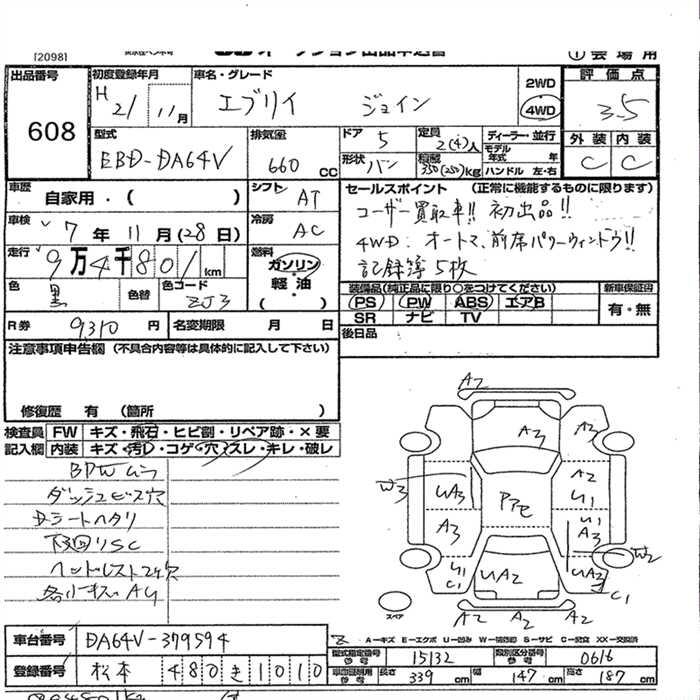 [2098]
① 会場用
出品番号 608
初度登録年月 H 21/11月
車名・グレード エブリイ ジョイン
2WD 4WD
評価点 3.5
型式 EBD-DA64V
排気量 660 CC
ドア 5
定員 2(4)人
形状 バン
積載 350(250)kg
ディーラー・並行
モデル年式 年
ハンドル 左・右
外装 C 内装 C
車歴 自家用・( )
シフト AT
セールスポイント (正常に機能するものに限ります)
ユーザー買取車!! 初出品!!
4WD. オートマ、前席パワーウィンドウ!!
記録簿5枚
車検 7年 11月(28日)
冷房 AC
走行 9万4千801km
燃料 ガソリン・軽油 ( )
色 黒 色替 色コード ZJ3
装備品(純正品に限り○をつけてください)
PS PW ABS エアB
SR ナビ TV
新車保証書 有・無
R券 9310円
名変期限 月 日
後日品
注意事項申告欄 (不具合内容等は具体的に記入して下さい)
修復歴 有 (箇所 )
検査員記入欄
FW キズ・飛石・ヒビ割・リペア跡・×要
内装 キズ・汚レ・コゲ・穴・スレ・キレ・破レ
ダッシュビス穴
Dシートヘタリ
下回りSC
ヘッドレスト2ヶ穴
A2
A3 A3
W3 UA3 A2 U1
アケ
A3 U1 A3
W2
U1 C1 UA2 UA2 C1
スペア
A2 A2 A2
A-キズ E-エクボ U-凹み W-補修跡 S-サビ C-腐食 XX-交換済
車台番号 DA64V-379594
型式指定番号 参考 15132
類別区分番号 参考 0616
登録番号 松本 480 き 1010
長さ 339 cm 幅 147 cm 高さ 187 cm